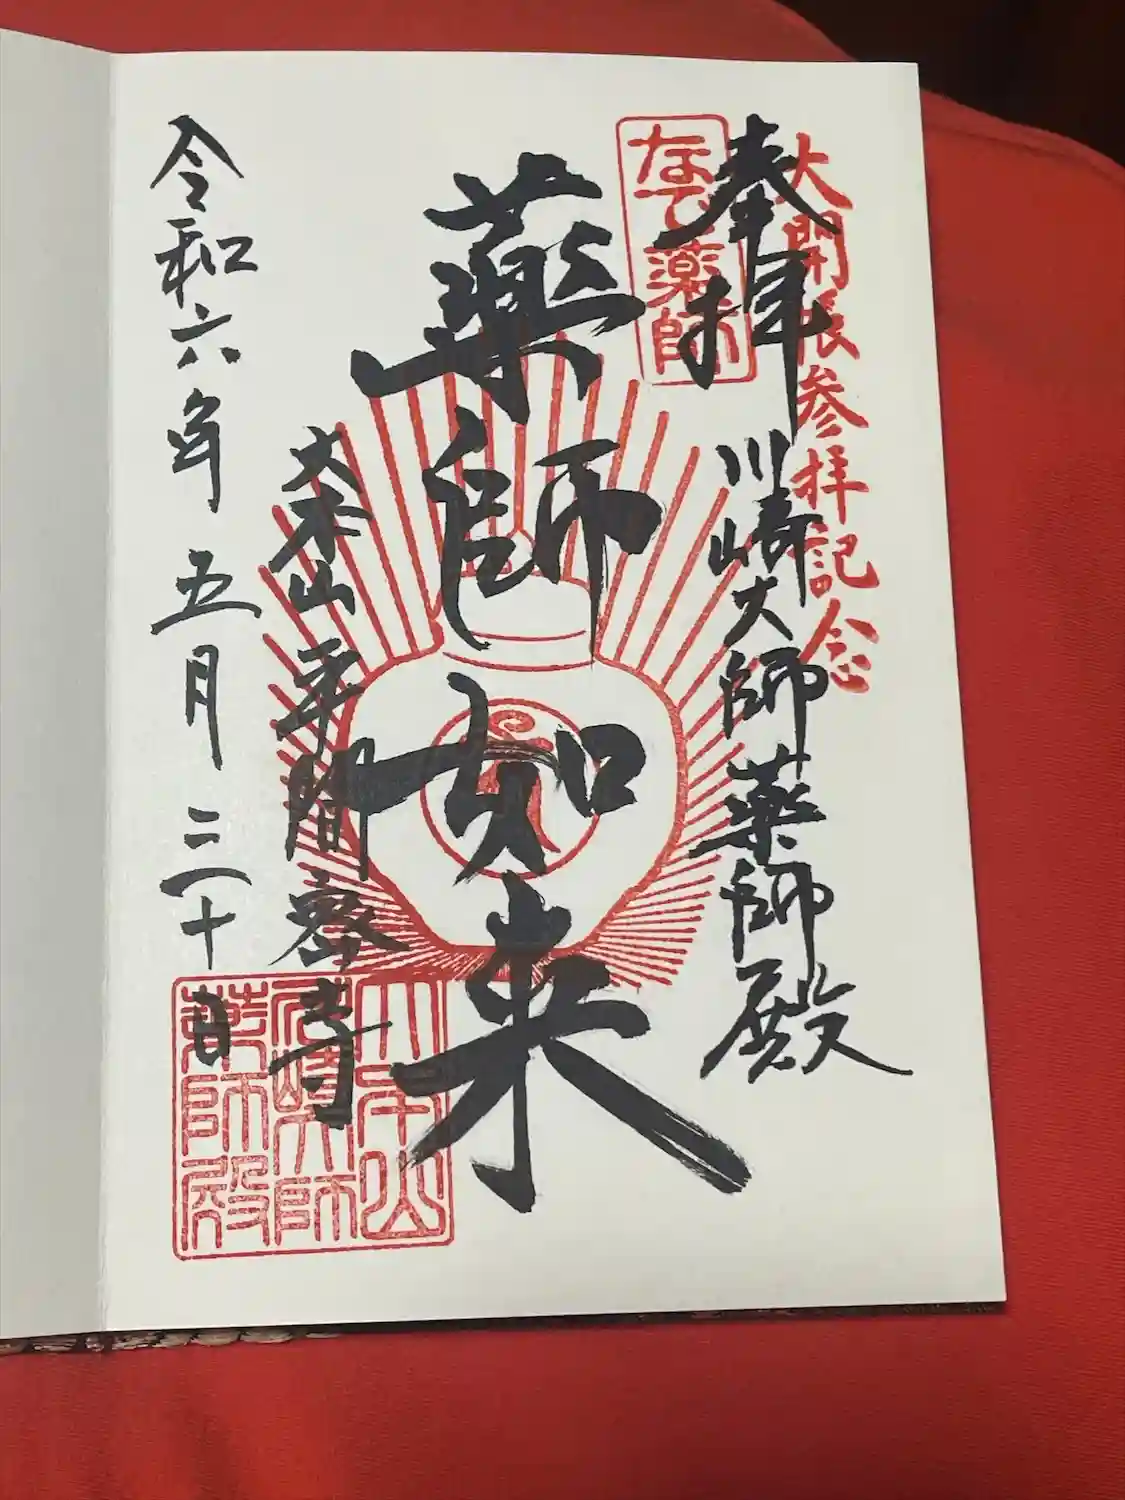 大開帳参拝記念
奉拝
川崎大師薬師殿
なで薬師
薬師如来
大本山平間寺
令和六年五月三十日
大本山
川崎大師
薬師殿